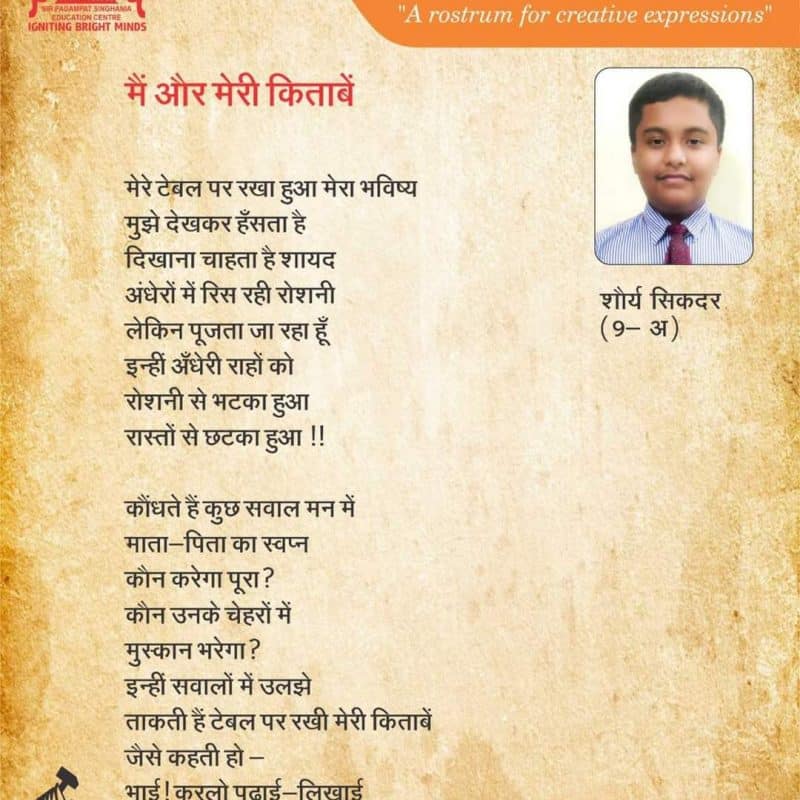 SIR PADAMPAT SINGHANIA
EDUCATION CENTRE
IGNITING BRIGHT MINDS
"A rostrum for creative expressions"
मैं और मेरी किताबें
मेरे टेबल पर रखा हुआ मेरा भविष्य
मुझे देखकर हँसता है
दिखाना चाहता है शायद
अंधेरों में रिस रही रोशनी
लेकिन पूजता जा रहा हूँ
इन्हीं अँधेरी राहों को
रोशनी से भटका हुआ
रास्तों से छटका हुआ !!
कौंधते हैं कुछ सवाल मन में
माता–पिता का स्वप्न
कौन करेगा पूरा?
कौन उनके चेहरों में
मुस्कान भरेगा?
इन्हीं सवालों में उलझे
ताकती हैं टेबल पर रखी मेरी किताबें
जैसे कहती हो –
भाई! करलो पढाई–लिखाई
शौर्य सिकदर
(9– अ)